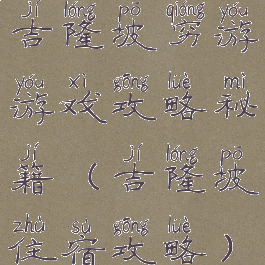 jí lóng pō qióng yóu
吉隆坡穷游
yóu xì gōng lüè mì
游戏攻略秘
jí jí lóng pō
籍(吉隆坡
zhù sù gōng lüè
住宿攻略)